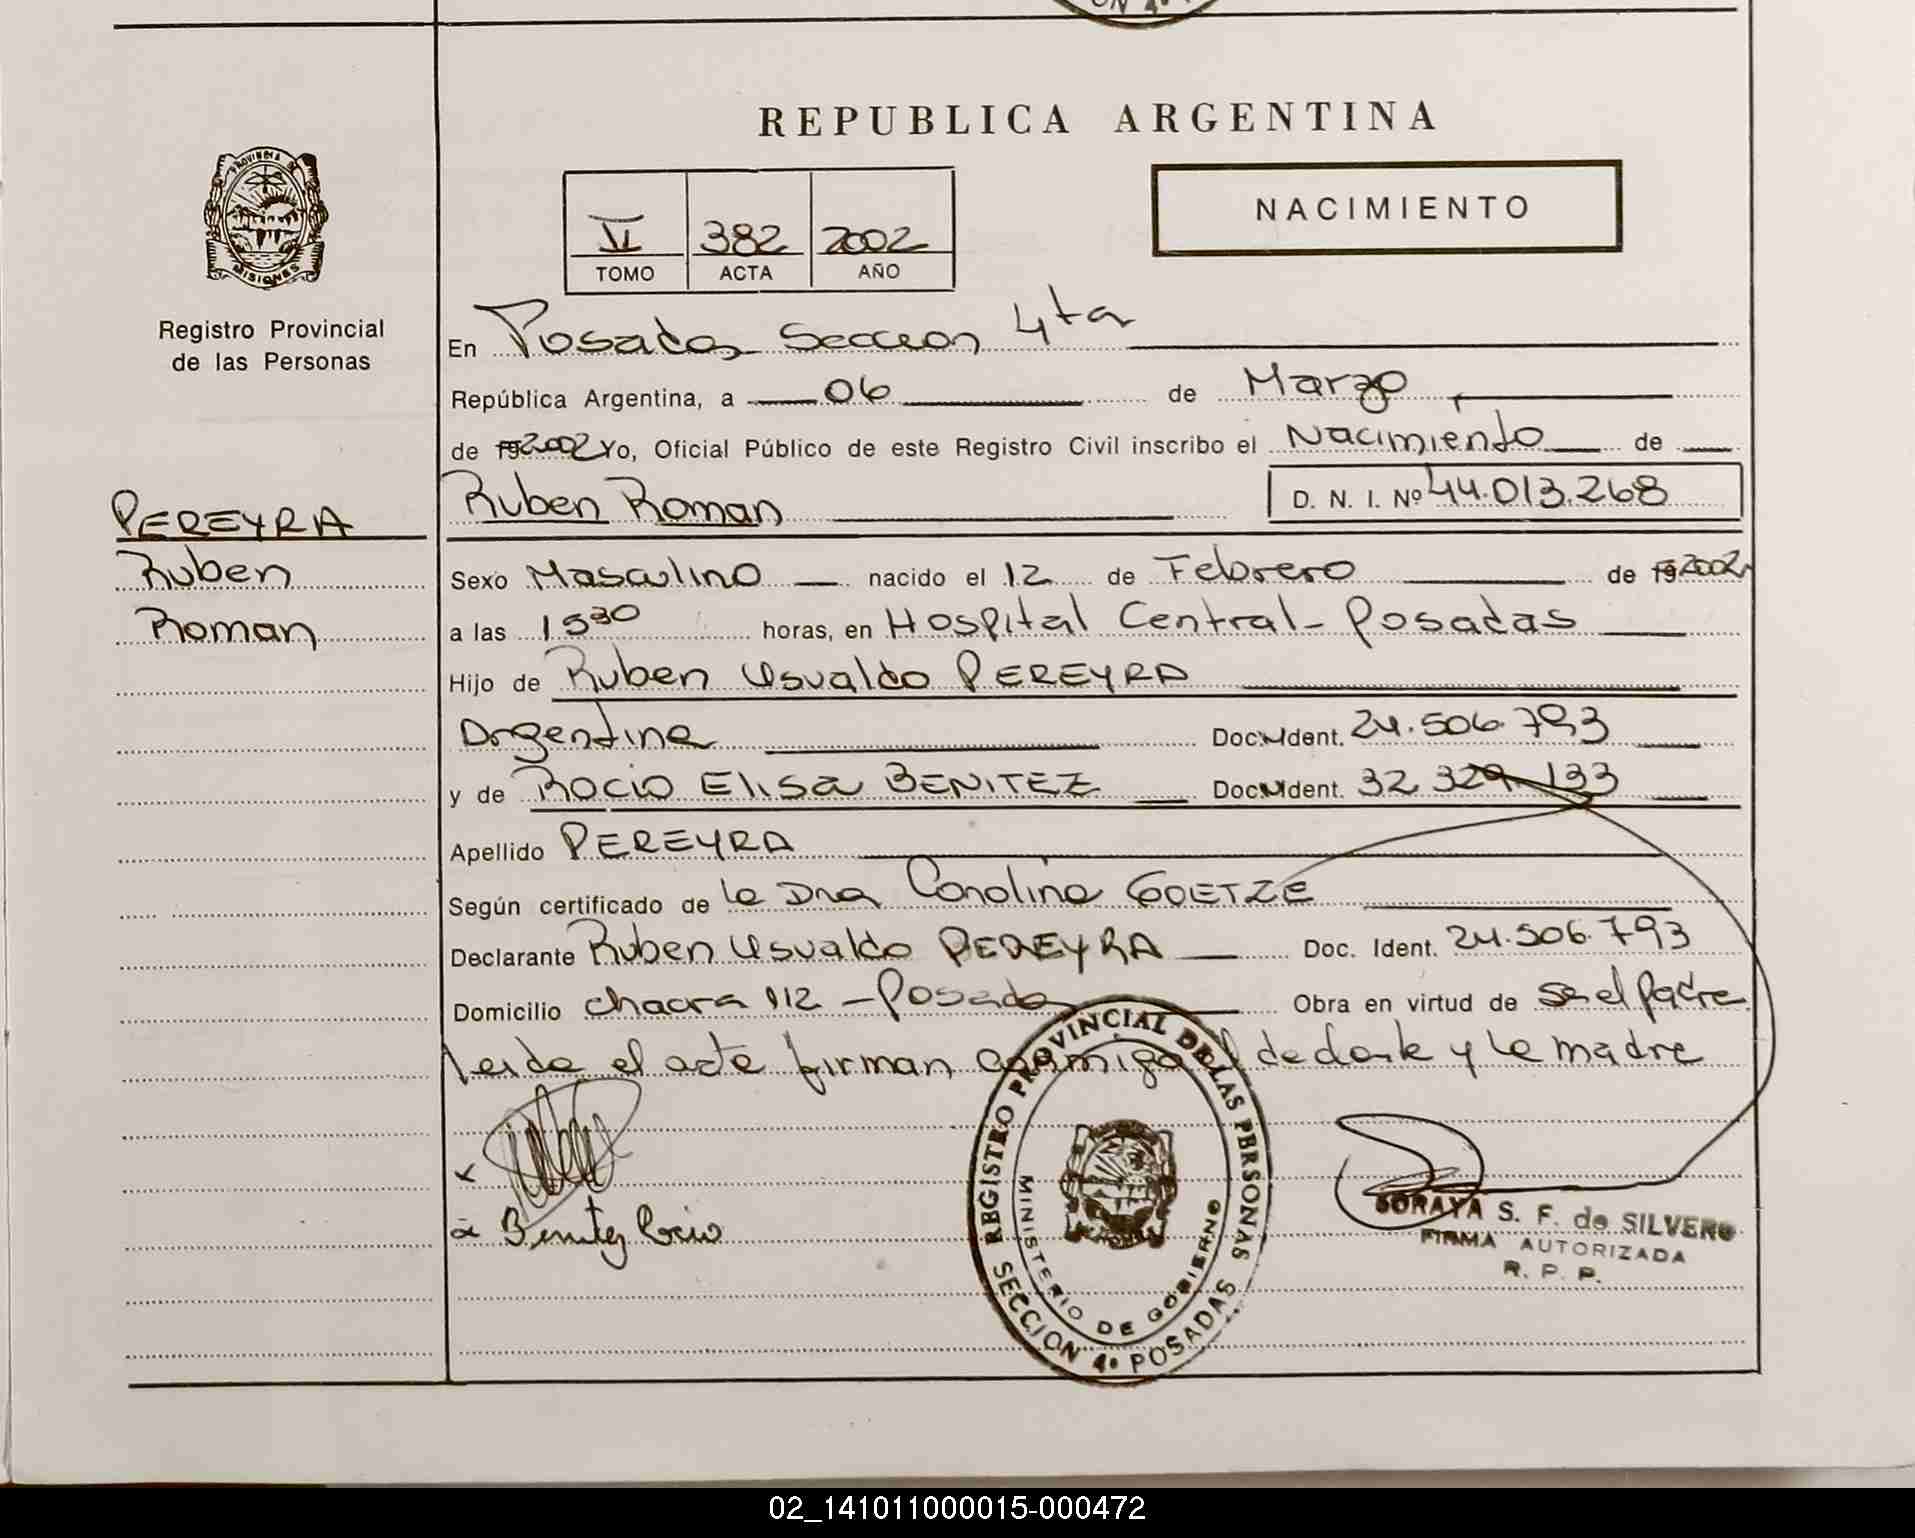 REPUBLICA ARGENTINA
PROVINCIA DE
MISIONES
Registro Provincial
de las Personas
NACIMIENTO
VI 382 2002
TOMO ACTA AÑO
En Posadas Seccion 4ta
República Argentina, a 06 de Marzo
de 19 2002 Yo, Oficial Público de este Registro Civil inscribo el Nacimiento de
PEREYRA
Ruben
Roman
Ruben Roman D. N. I. Nº 44.013.268
Sexo Masculino nacido el 12 de Febrero de 19 2002
a las 15 30 horas, en Hospital Central - Posadas
Hijo de Ruben Usvaldo PEREYRA
Argentina Doc. Ident. 24.506.793
y de ROCIO ELISA BENITEZ Doc. Ident. 32 329 133
Apellido PEREYRA
Según certificado de la Dra Carolina GOETZE
Declarante Ruben Usvaldo PEREYRA Doc. Ident. 24.506.793
Domicilio chacra 112 - Posadas Obra en virtud de ser el padre
leida el acta firman conmigo el declarante y la madre
Benitez Rocio
REGISTRO PROVINCIAL DE LAS PERSONAS
MINISTERIO DE GOBIERNO
SECCION 4º POSADAS
SORAYA S. F. de SILVERO
FIRMA AUTORIZADA
R. P. P.
02_141011000015-000472